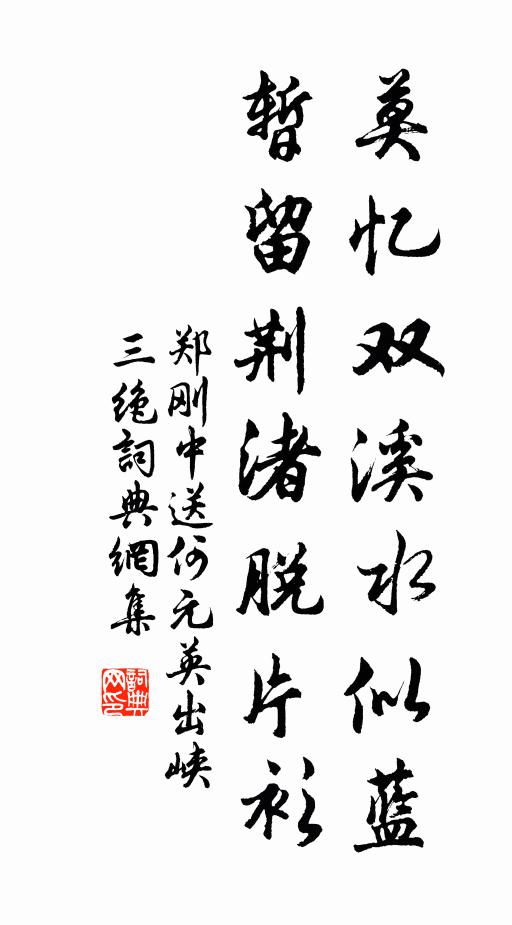 莫忆双溪水似蓝
暂留荆渚脱片衫
郑刚中送何元英出峡
三绝詞典網集
詞典
网印